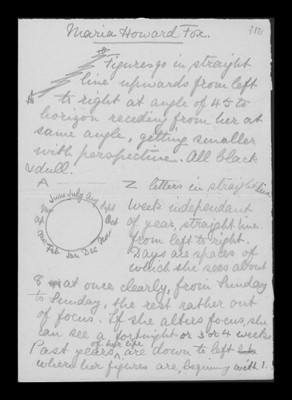 Maria Howard Fox.
Figures go in straight
line upwards from left
to right at angle of 45 to
horizon receding from her at
same angle, getting smaller
with perspective. All black
& dull.
A ——— Z letters in straight line
June July Aug Sept Oct Nov Dec Jan Feb Mar Ap May
Week independant
of year, straight line.
from left to right.
Days are spaces of
which she sees about
8 at once clearly, from Sunday
to Sunday, the rest rather out
of focus. If she alters focus, she
can see a fortnight or 3 or 4 weeks
Past years of her life are down to left
where her figures are, beginning with 1.